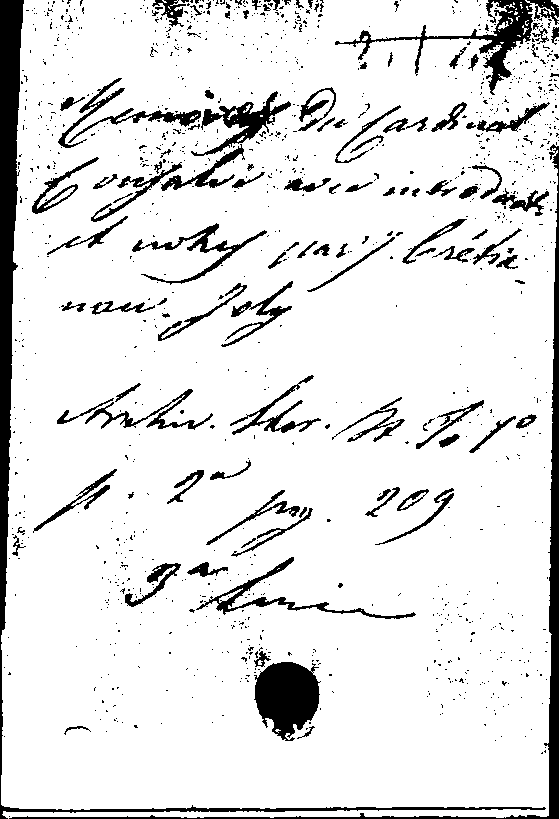 Memoires du Cardinal
Consalvi avec introduct.
et notes par J. Crétin-
eau-Joly
Archiv. Stor. It. To. 1º
p. 2ª pag. 209
3ª Serie